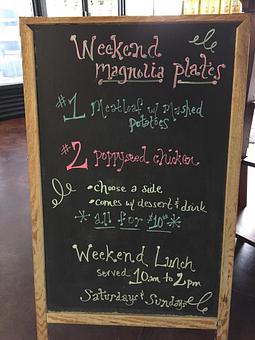 Weekend
magnolia plates
#1 Meatloaf w/ Mashed
potatoes
#2 poppyseed chicken
• choose a side
• comes w/ dessert & drink
* all for $10 *
Weekend Lunch
served 10am to 2pm
Saturdays & Sundays